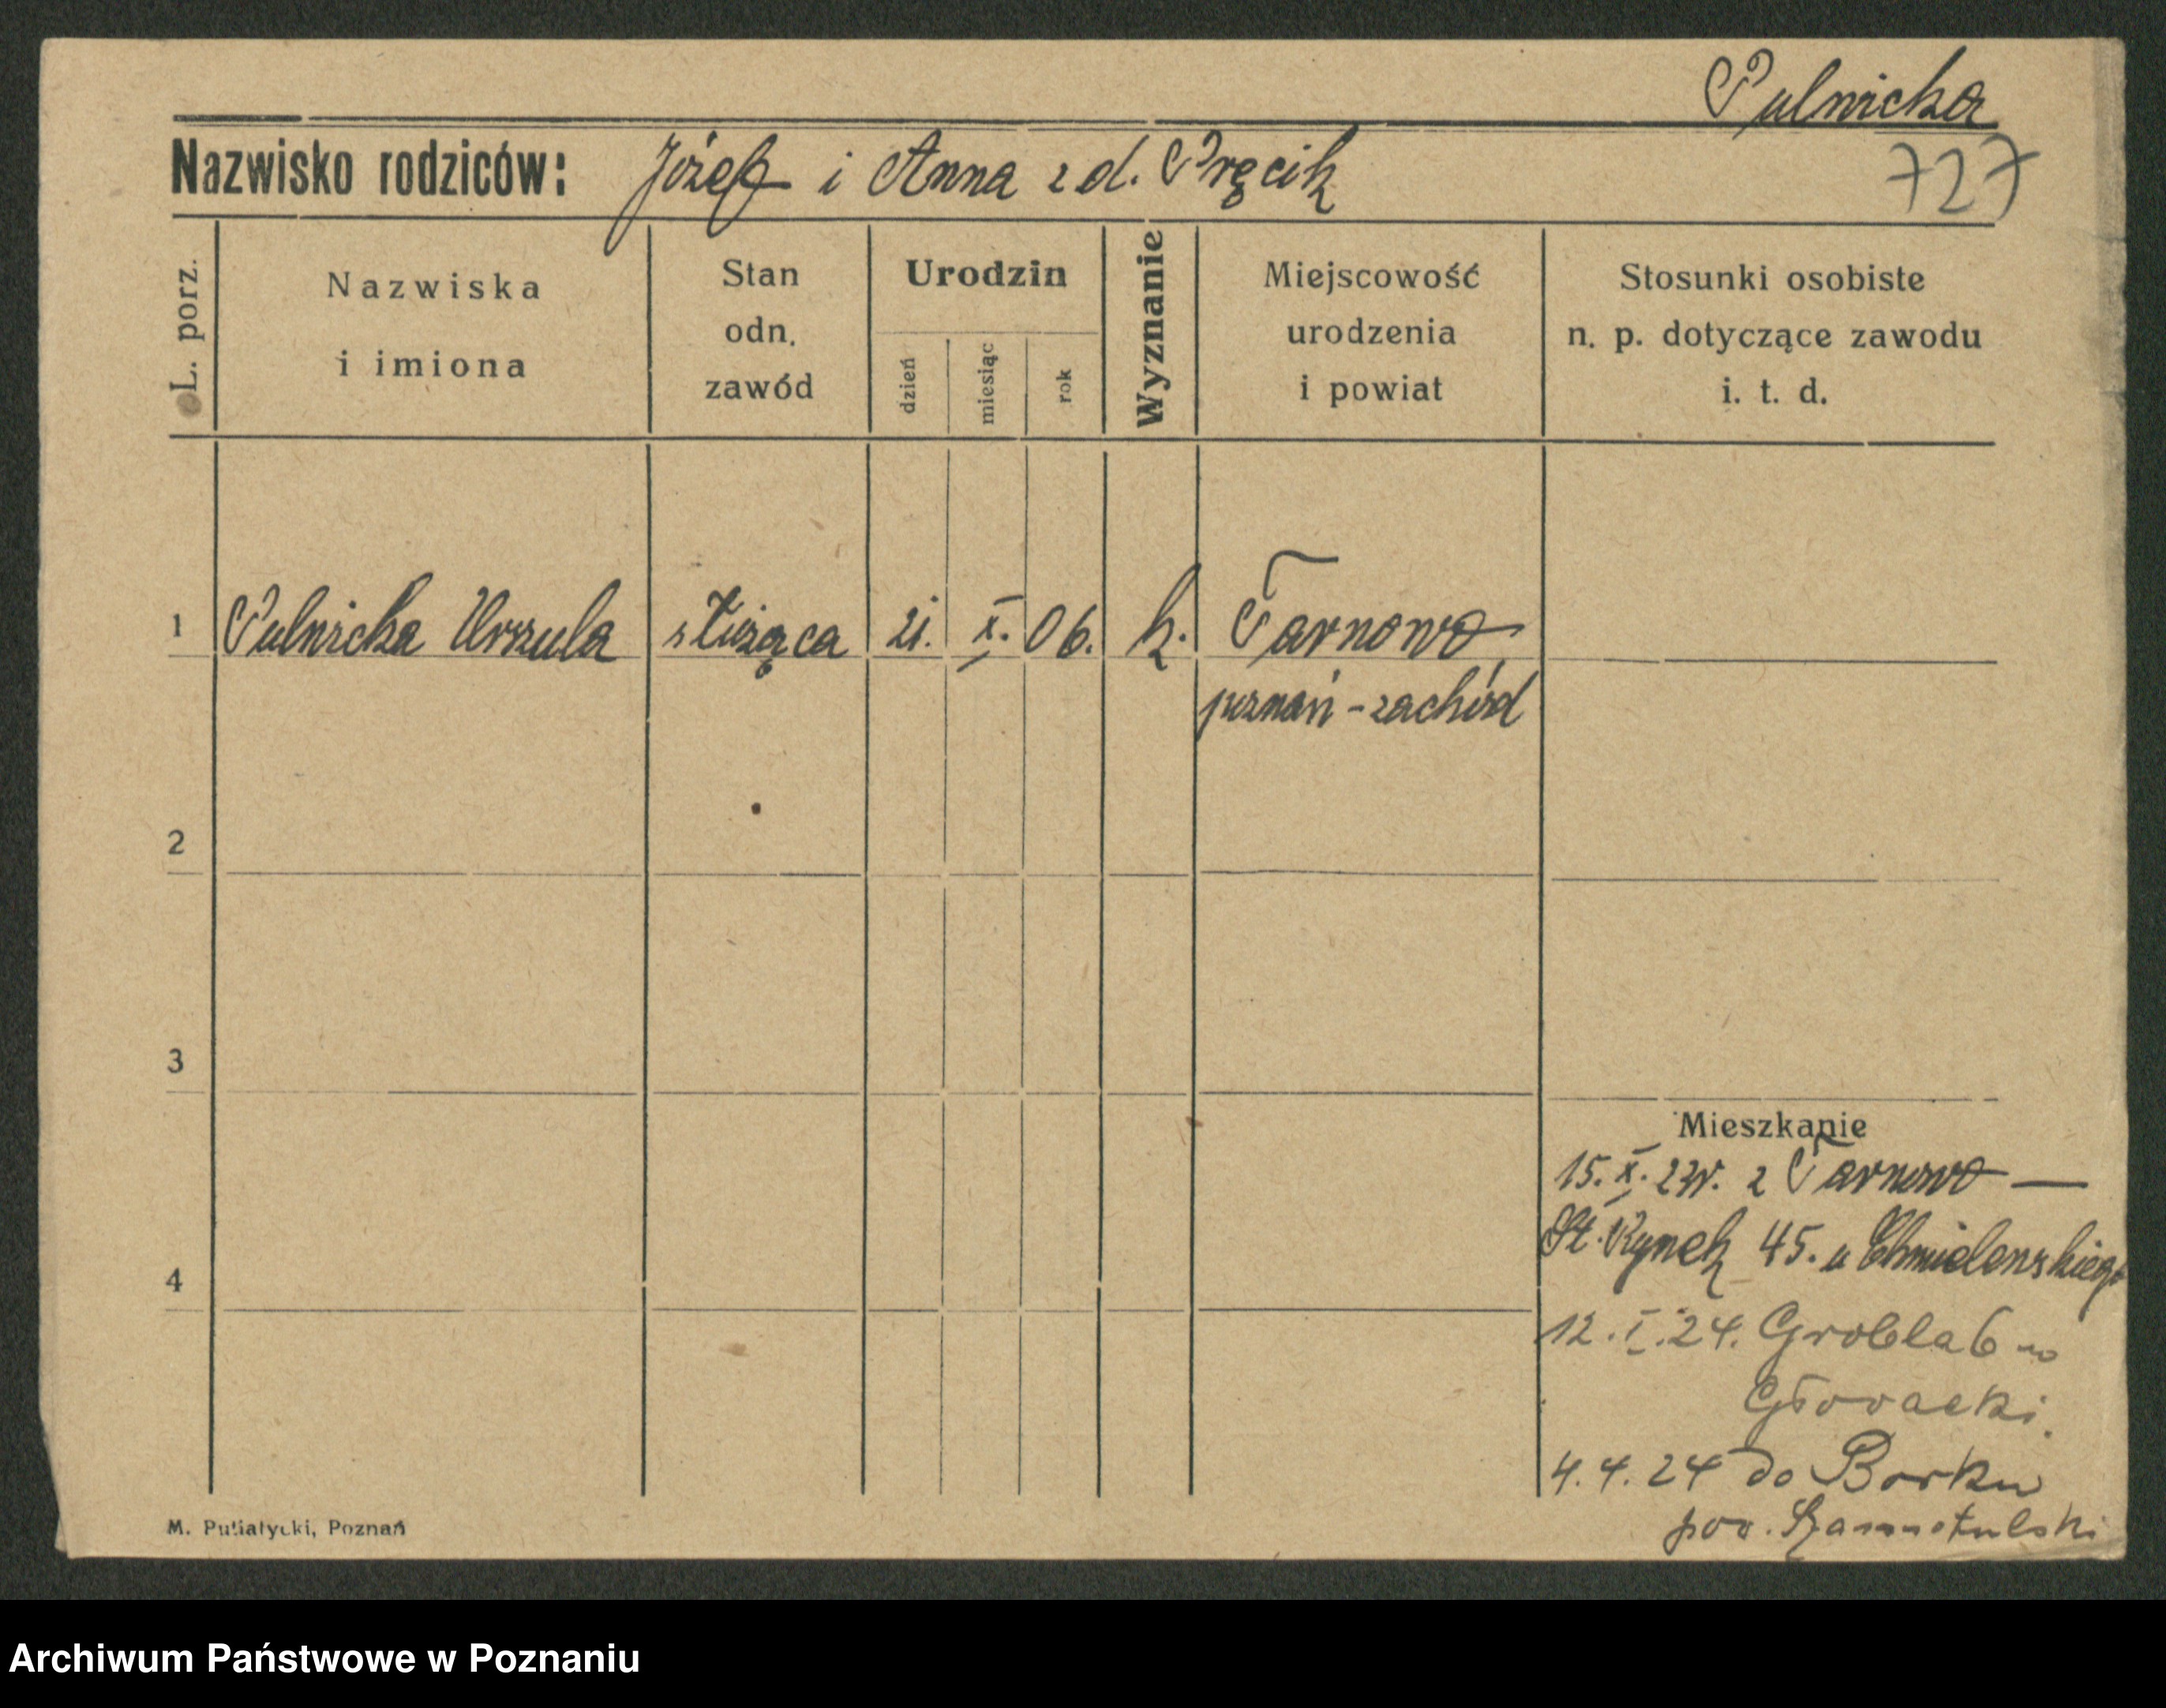 Pulnicka
727
Nazwisko rodziców: Józef i Anna z d. Pręcik
L. porz.
Nazwiska i imiona
Stan odn. zawód
Urodzin
dzień
miesiąc
rok
Wyznanie
Miejscowość urodzenia i powiat
Stosunki osobiste n. p. dotyczące zawodu i. t. d.
1 Pulnicka Urszula służąca 21. X. 06. k. Tarnowo
poznań-zachód
2
3
Mieszkanie
15. X. 23r. z Tarnowo —
St. Rynek 45. u Chmielewskiego
4
12. I. 24. Grobla 6
Głowacki.
4. 4. 24 do Borku
pow. Szamotulski
M. Putiatycki, Poznań
Archiwum Państwowe w Poznaniu